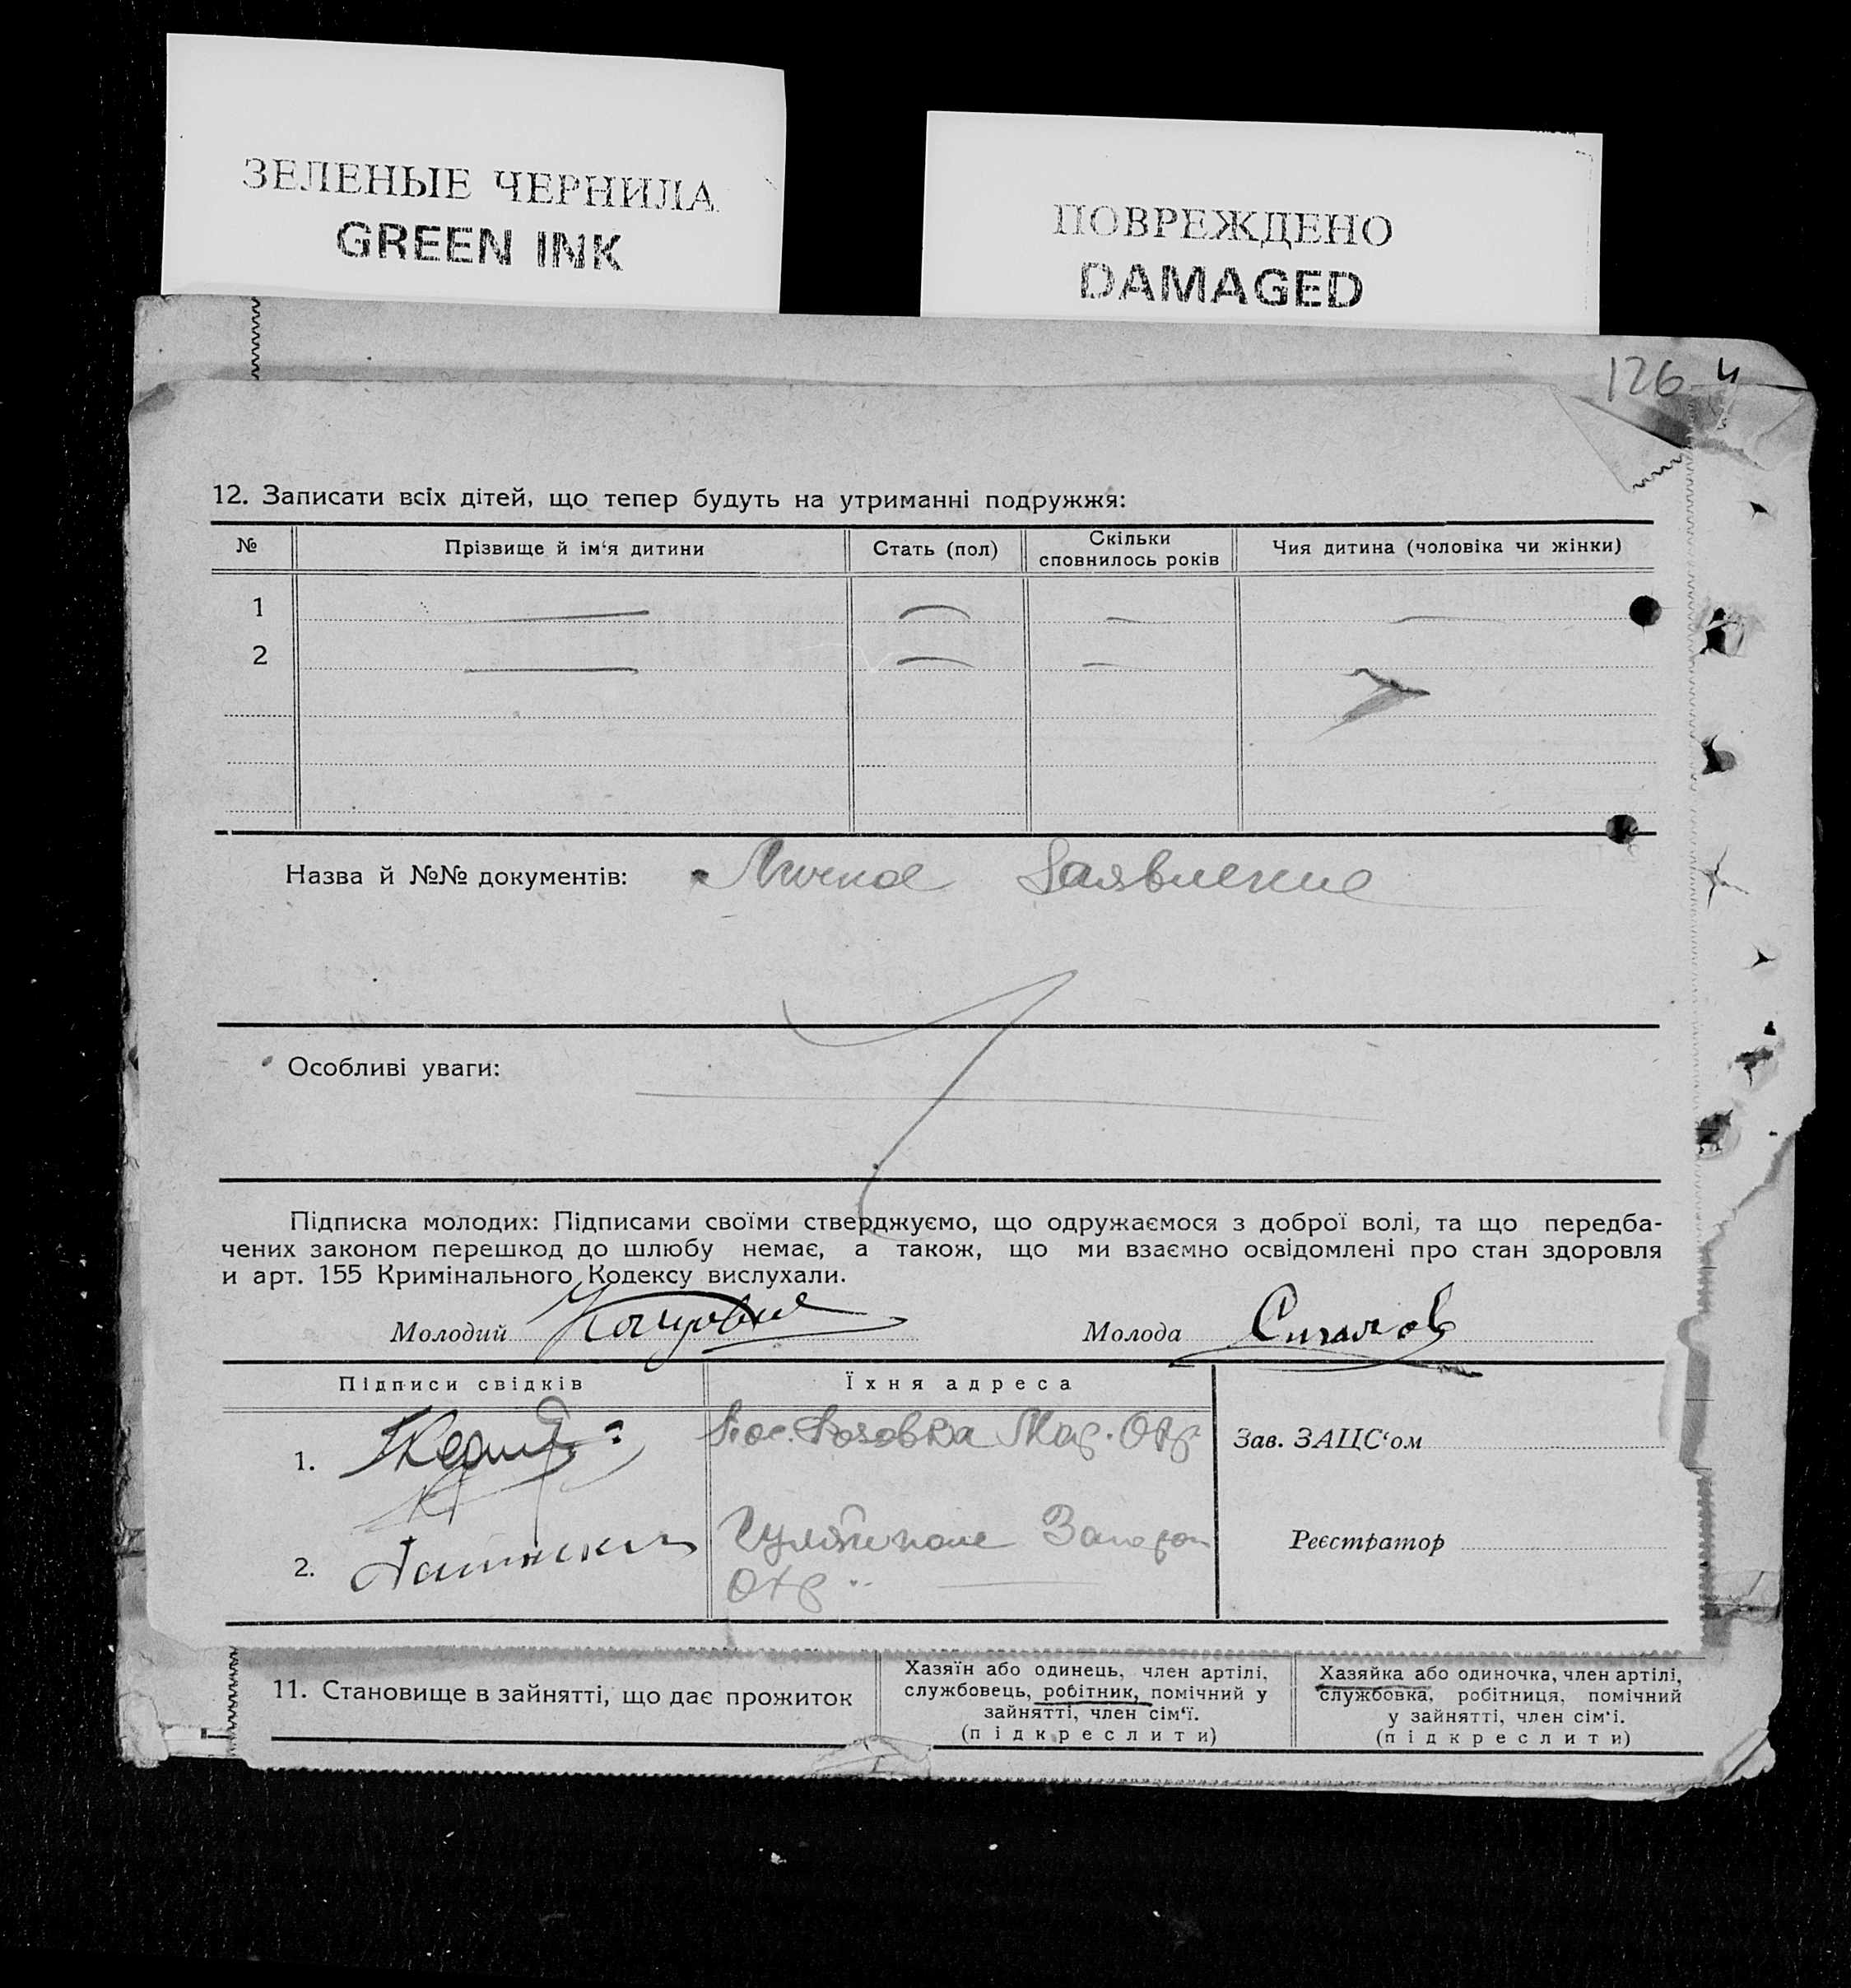 ЗЕЛЕНЫЕ ЧЕРНИЛА
GREEN INK
ПОВРЕЖДЕНО
DAMAGED
126
12. Записати всіх дітей, що тепер будуть на утриманні подружжя:
№ Прізвище й ім‘я дитини Стать (пол) Скільки сповнилось років Чия дитина (чоловіка чи жінки)
1 — — — —
2 — — —
Назва й №№ документів: Личное Заявление
Особливі уваги:
Підписка молодих: Підписами своїми стверджуємо, що одружаємося з доброї волі, та що передба-
чених законом перешкод до шлюбу немає, а також, що ми взаємно освідомлені про стан здоровля
и арт. 155 Кримінального Кодексу вислухали.
Молодий Молода
Підписи свідків Їхня адреса
1. Мар. Окр. Зав. ЗАЦС‘ом
2. Гуляйполе Запорож Реєстратор
Окр.
11. Становище в зайнятті, що дає прожиток
Хазяїн або одинець, член артілі,
службовець, робітник, помічний у
зайнятті, член сім‘ї.
(підкреслити)
Хазяйка або одиночка, член артілі,
службовка, робітниця, помічний
у зайнятті, член сім‘і.
(підкреслити)